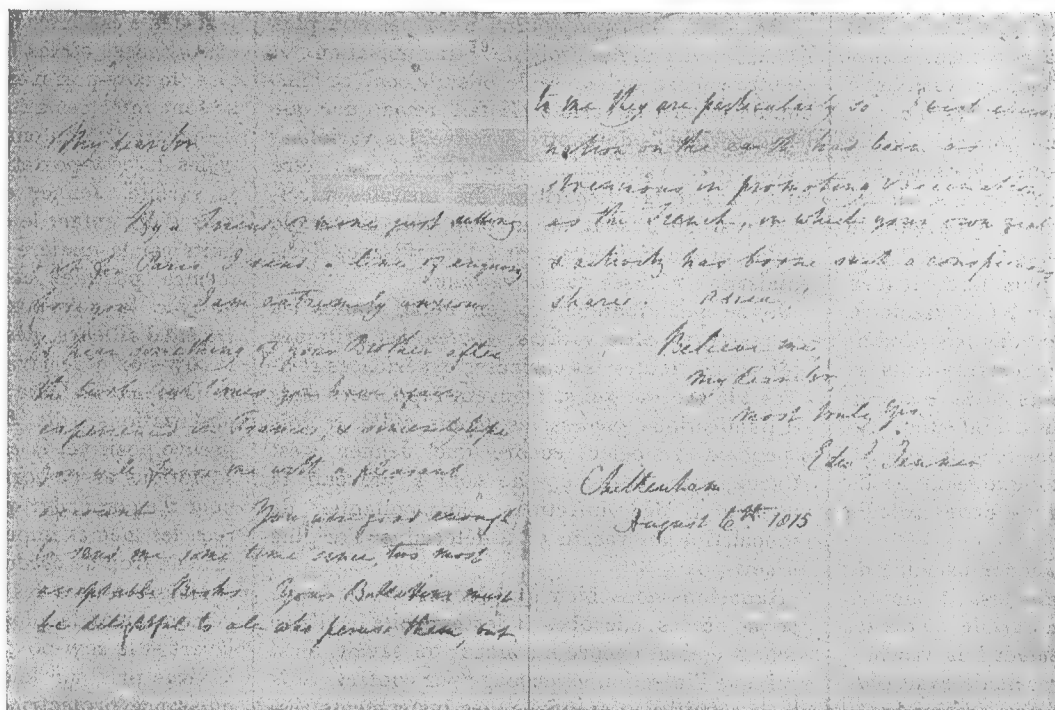 39
My dear Sir
By a Friend of mine just setting
out for Paris, I send a line of enquiry
for you I am extremely anxious
to hear something of your Brother after
the times you have again
experienced in France, & sincerely hope
you will favor me with a pleasant
account You was good enough
to send me some time since, two most
acceptable Books Your Bulletins must
be delightful to all who peruse them, but
to me they are particularly so I wish every
nation on the earth had been as
strenuous in promoting Vaccination
as the French, in which your own zeal
& activity has borne such a conspicuous
share. Adieu,
Believe me,
My dear Sir
most truly Yrs.
Edwd. Jenner
Cheltenham
August 6th 1815